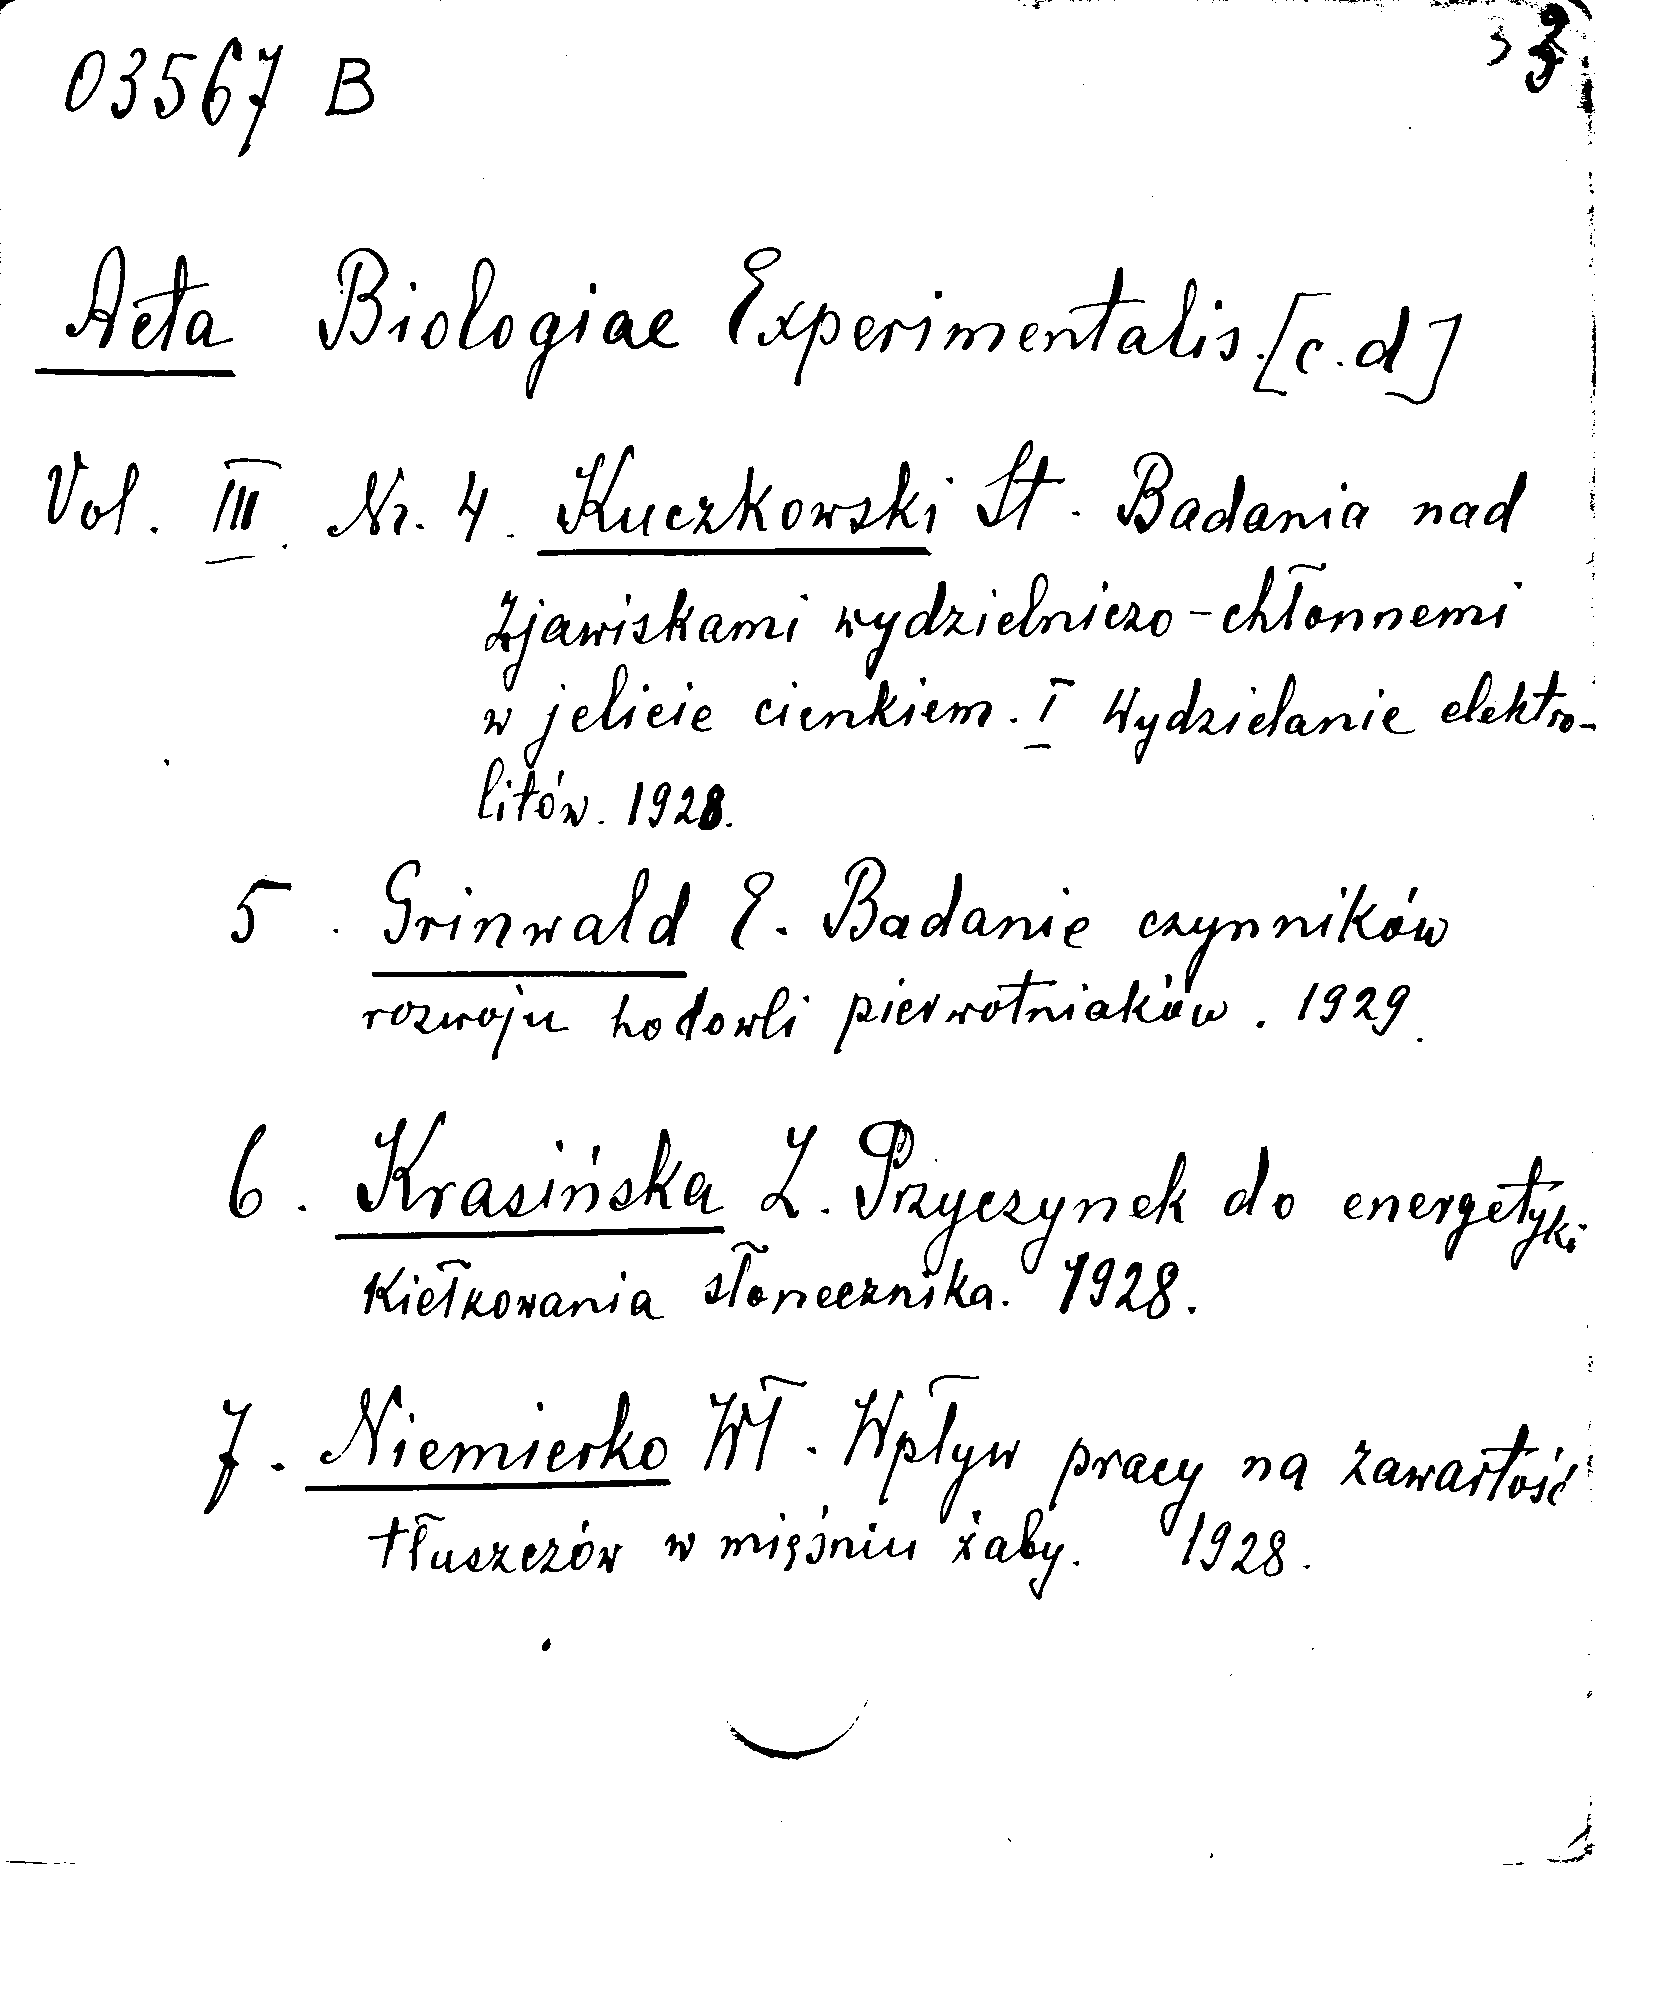 03567 B
Acta Biologiae Experimentalis. [c.d]
Vol. III. Nr. 4. Kuczkowski St. Badania nad
zjawiskami wydzielniczo-chłonnemi
w jelicie cienkiem. I Wydzielanie elektro-
litów. 1928.
5. Grinwald E. Badanie czynników
rozwoju hodowli pierwotniaków. 1929.
6. Krasińska Z. Przyczynek do energetyki
kiełkowania słonecznika. 1928.
7. Niemierko Wł. Wpływ pracy na zawartość
tłuszczów w mięśniu żaby. 1928.